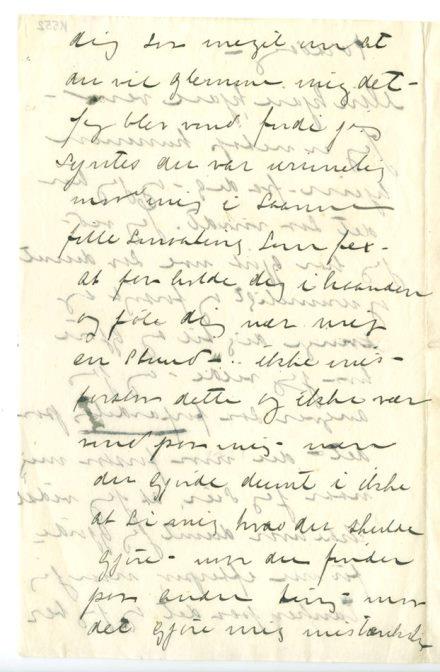 dig saa meget om at
du vil glemme mig det –
Jeg blev vred fordi jeg
syntes du var urimelig
mod mig i saanne
smaating som fex.
at faa holde dig i haanden
og føle dig nær mig
en stund – ikke mis-
forstaa dette og ikke vær
vred paa mig – men
du gjorde dumt i ikke
at si mig hvad du skulde
gjøre – naar du finder
paa andre ting – maa
det gjøre mig mistænksom